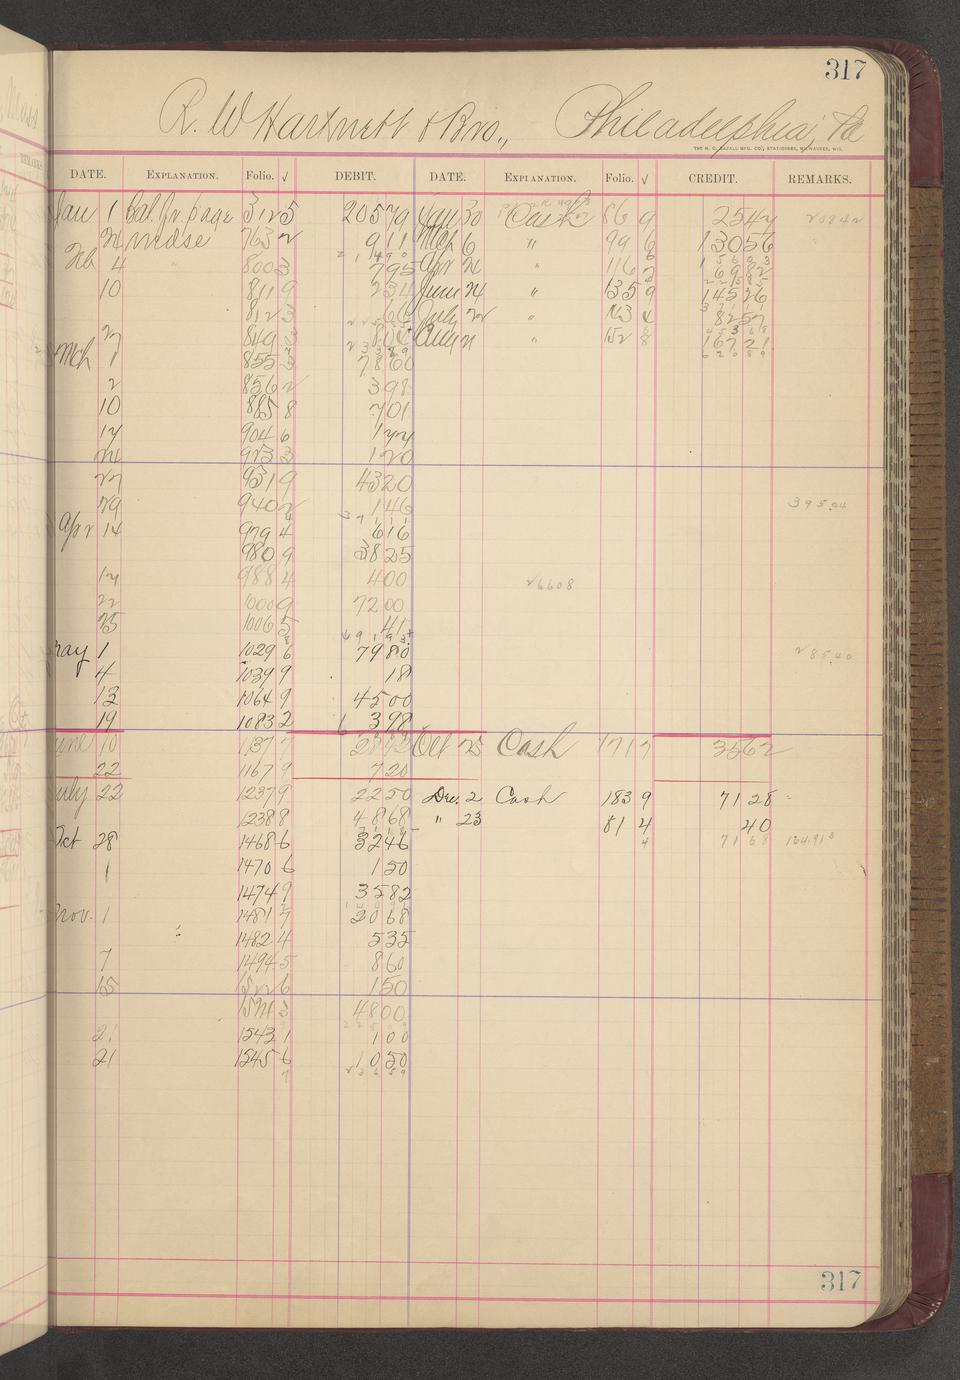 317
R. W Hartnett & Bro., Philadelphia, Pa
THE H. G. RAZALL MFG. CO., STATIONERS, MILWAUKEE, WIS.
DATE. EXPLANATION. FOLIO. √ DEBIT. DATE. EXPLANATION. FOLIO. √ CREDIT. REMARKS.
Jan 1 Bal. fr. page 312 5 20579 Jan 30 Cash 86 9 2542
mdse 763 2 911 Mch 6 " 99 6 13056
Feb 4 " 800 3 795 Apr 21 " 116 2 6982
10 811 9 234 June 24 " 135 9 14526
812 3 66 July 22 " 143 4 8257
27 849 3 804 Aug 21 " 152 8 16721
Mch 1 855 3 7860
2 856 2 398
10 885 8 701
17 904 6 177
21 923 3 120
27 931 9 4320
29 940 2 146 395.94
Apr 14 979 4 616
980 9 3825
17 988 4 400 26608
22 1000 9 7200
25 1006 5 41
May 1 1029 6 7980 285.40
4 1039 9 18
13 1064 9 4500
19 1083 2 398
June 10 1137 7 2842 Oct 25 Cash 171 7 3562
22 1167 9 720
July 22 1237 9 2250 Dec. 2 Cash 183 9 7128
1238 8 4868 " 23 81 4 40
Oct 28 1468 6 3246 7168 164.91
1 1470 6 150
1474 9 3582
Nov. 1 1481 7 2068
1482 4 535
7 1494 5 860
15 1522 6 150
4800
21 1543 1 100
21 1545 6 1050
23659
317